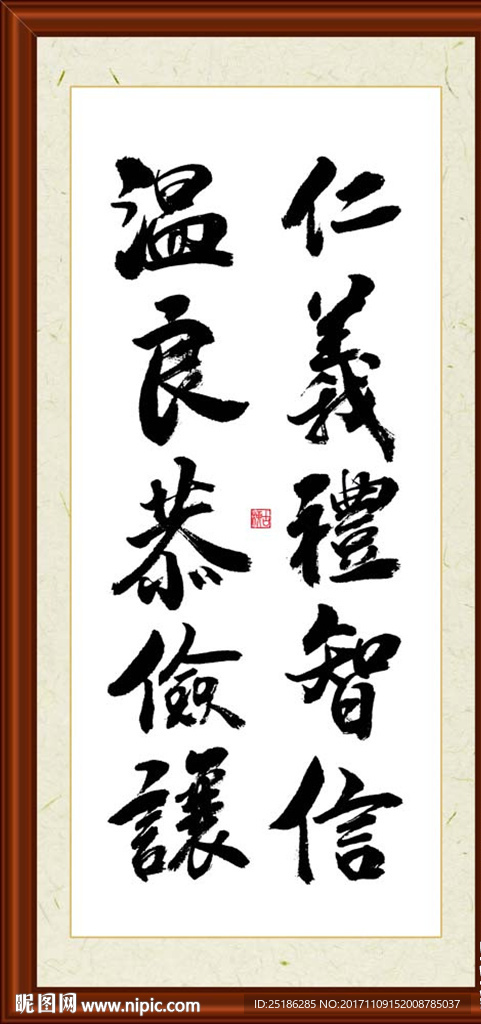 仁義禮智信
温良恭儉讓
昵图网 www.nipic.com
ID:25186285 NO:20171109152008785037